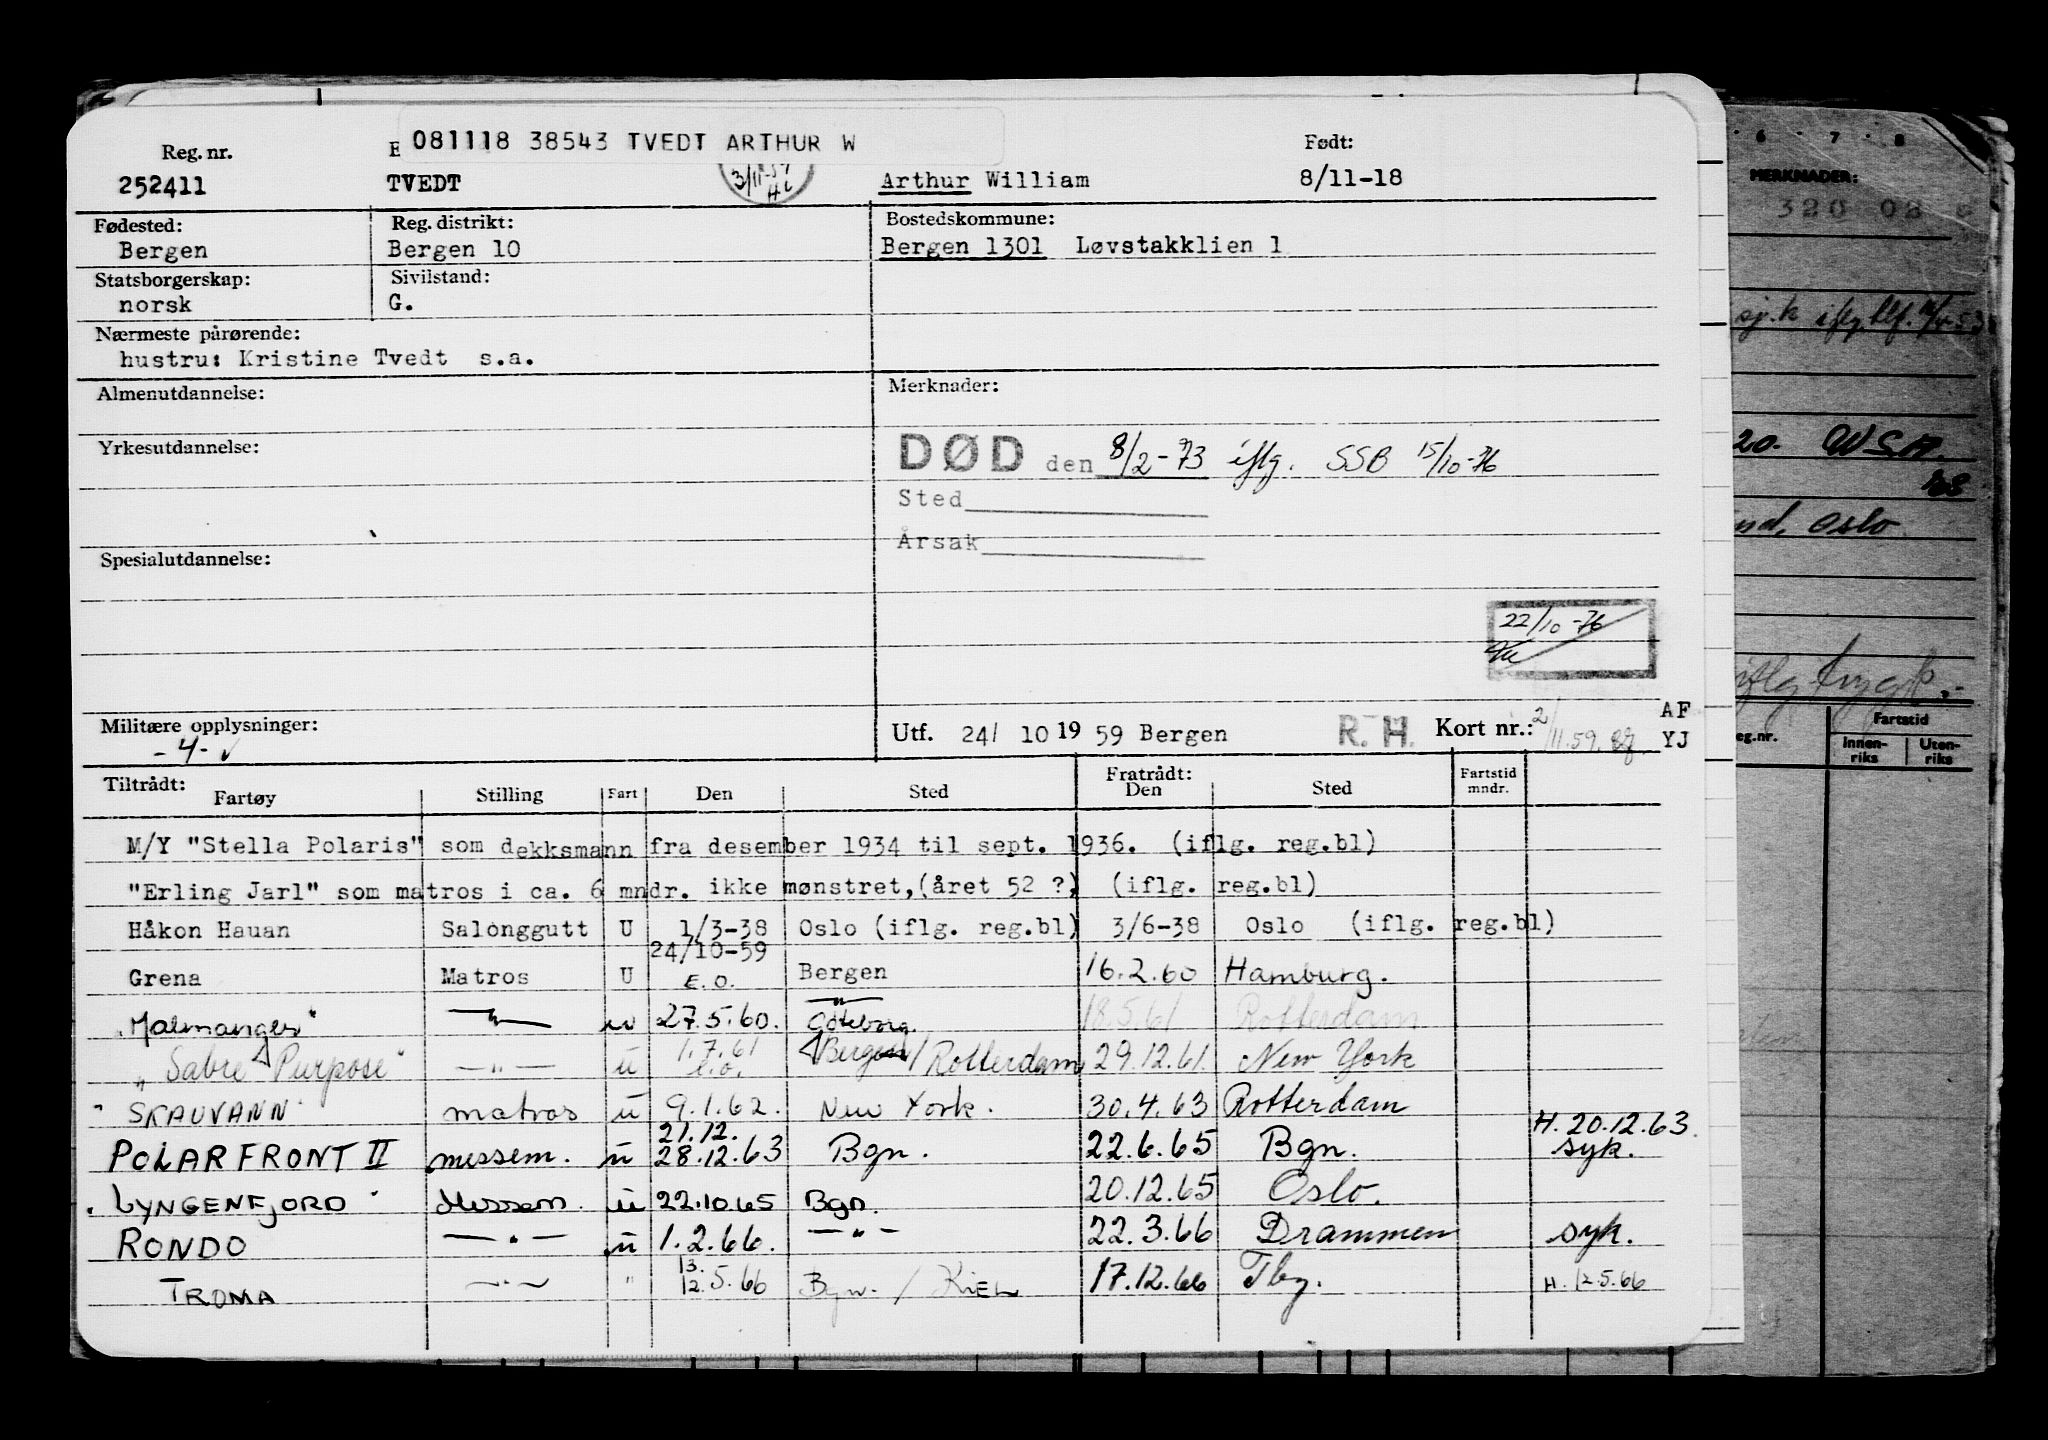 081118 38543 TVEDT ARTHUR W
Reg. nr. E Født:
252411 TVEDT 3/11-59 Arthur William 8/11-18
Fødested: Reg. distrikt: Bostedskommune:
Bergen Bergen 10 Bergen 1301 Løvstakklien 1
Statsborgerskap: Sivilstand:
norsk G.
Nærmeste pårørende:
hustru: Kristine Tvedt s.a.
Almenutdannelse: Merknader:
Yrkesutdannelse: DØD den 8/2-73 iflg. SSB 15/10-76
Sted
Årsak
Spesialutdannelse:
22/10-76
Militære opplysninger: Utf. 24/ 10 19 59 Bergen R.H. Kort nr.: 2/11.59. AF
-4- YJ
Tiltrådt: Fratrådt:
Fartøy Stilling Fart Den Sted Den Sted Fartstid mndr.
M/Y "Stella Polaris" som dekksmann fra desember 1934 til sept. 1936. (iflg. reg.bl)
"Erling Jarl" som matros i ca. 6 mndr. ikke mønstret,(året 52 ?) (iflg. reg.bl)
Håkon Hauan Salonggutt U 1/3-38 Oslo (iflg. reg.bl) 3/6-38 Oslo (iflg. reg.bl)
Grena Matros U 24/10-59 E.O. Bergen 16.2.60 Hamburg.
"Malmanger" —"— u 27.5.60. —"— Göteborg. 18.5.61 Rotterdam
"Sabre Purpose" —"— u 1.7.61 e.o. Bergen/Rotterdam 29.12.61. New York
"SKAUVANN" matros u 9.1.62. New York. 30.4.63 Rotterdam
POLARFRONT II messem. u 21.12. 28.12.63 Bgn. 22.6.65 Bgn. H. 20.12.63. syk.
"LYNGENFJORD" Messem. u 22.10.65 Bgn. 20.12.65 Oslo.
RONDO —"— u 1.2.66. —"— 22.3.66 Drammen syk.
TROMA —"— " 13. 12.5.66 Bgn. / KIEL 17.12.66 Tbg. H. 12.5.66
6 7 8
MERKNADER:
320 08
20. WSA.
Oslo
eg.nr. Fartstid
Innenriks Utenriks